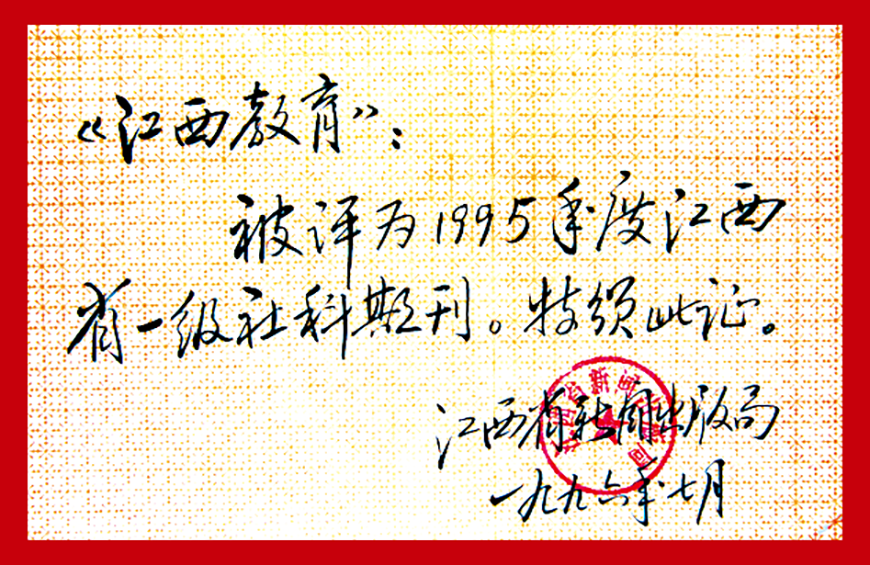 《江西教育》：
被评为1995年度江西
省一级社科期刊。特颁此证。
江西省新闻出版局
一九九六年七月
江西省新闻出版局